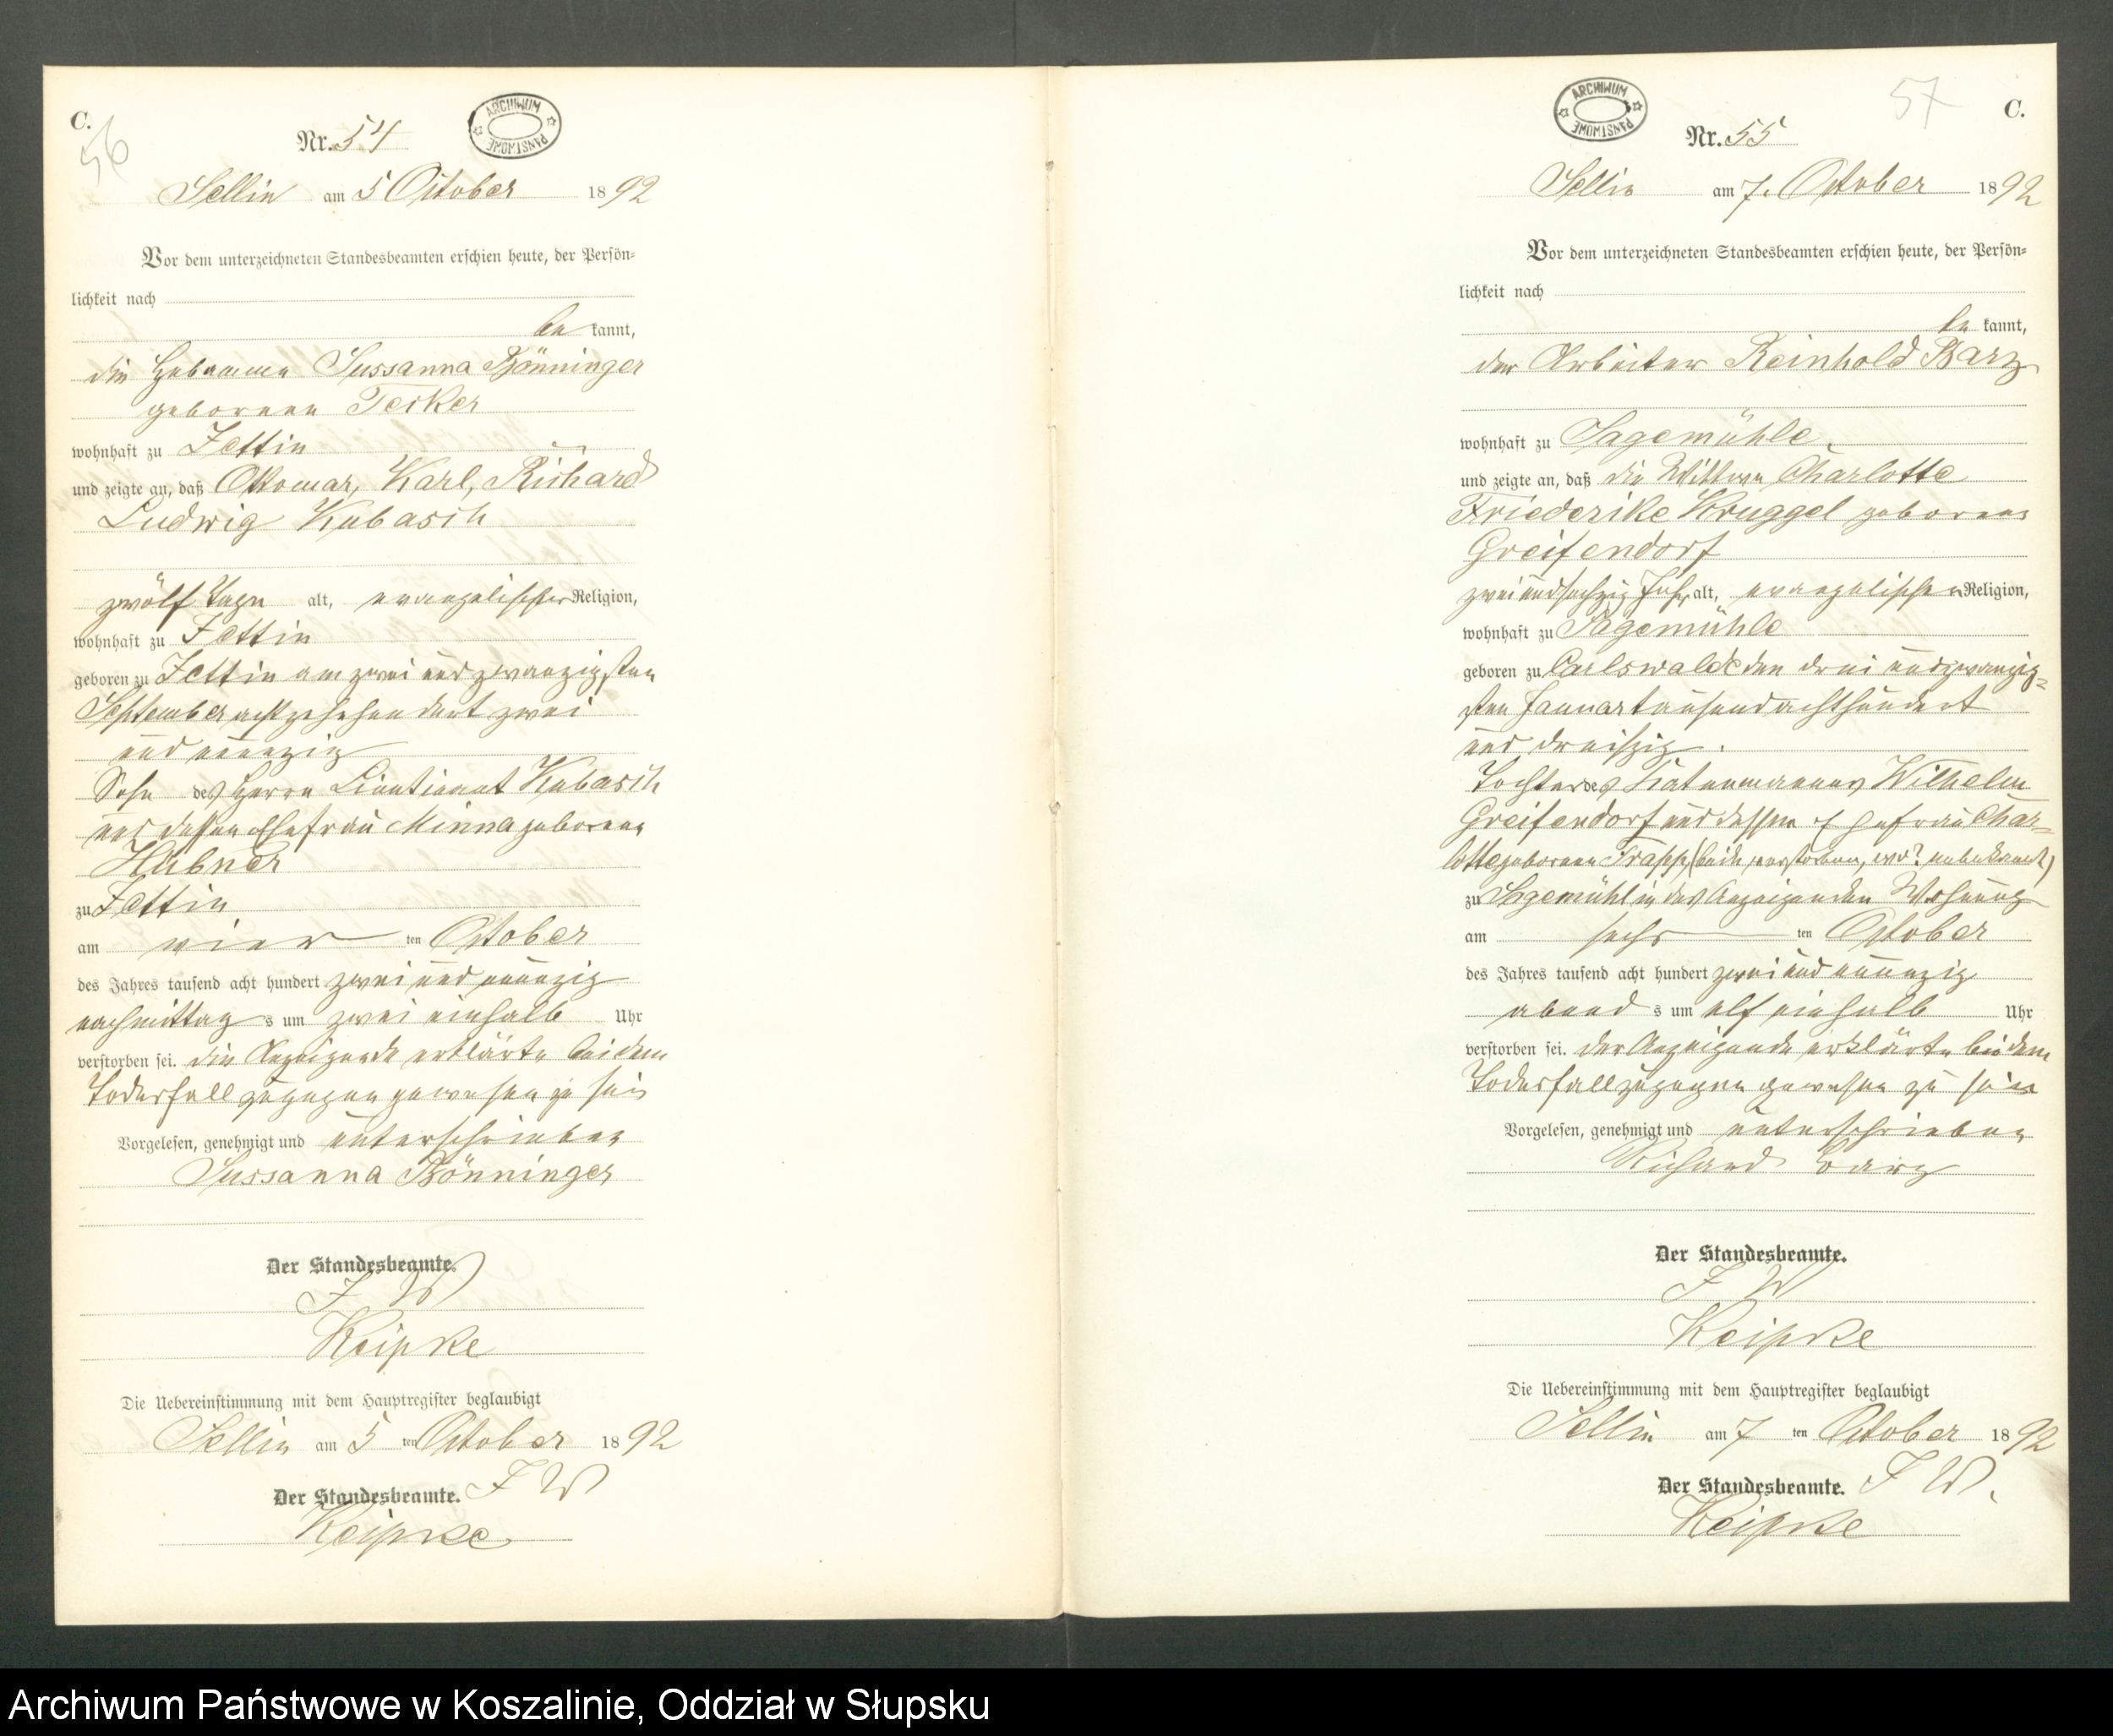 C.
56
Nr. 54
ARCHIWUM PAŃSTWOWE
Sellin am 5 October 1892
Vor dem unterzeichneten Standesbeamten erschien heute, der Persön-
lichkeit nach
be kannt,
die Hebamme Sussanna Bönninger
geborene Tesker
wohnhaft zu Zettin
und zeigte an, daß Ottomar, Karl, Richard
Ludwig Kubasch
zwölf Tage alt, evangelischer Religion,
wohnhaft zu Zettin
geboren zu Zettin am zwei und zwanzigsten
September achtzehehundert zwei
und neunzig
Sohn des Herrn Lieutienat Kubasch
und dessen Ehefrau Minna geborene
Hübner
zu Zettin
am vier ten October
des Jahres tausend acht hundert zwei und neunzig
nachmittag s um zwei einhalb Uhr
verstorben sei. die Anzeigende erklärte bei dem
Todesfall zugegen gewesen zu sein
Vorgelesen, genehmigt und unterschrieben
Sussanna Bönninger
Der Standesbeamte.
J W
Keipke
Die Uebereinstimmung mit dem Hauptregister beglaubigt
Sellin am 5 ten October 1892
Der Standesbeamte. J W
Keipke
57
C.
Nr. 55
ARCHIWUM PAŃSTWOWE
Sellin am 7. October 1892
Vor dem unterzeichneten Standesbeamten erschien heute, der Persön-
lichkeit nach
be kannt,
der Arbeiter Reinhold Barz
wohnhaft zu Sagemühle.
und zeigte an, daß die Wittwe Charlotte
Friederike Kruggel geborene
Greifendorf
zwei und sechzig Jahr alt, evangelischen Religion,
wohnhaft zu Sagemühle
geboren zu Carlswalde den drei und zwanzig-
sten Januar tausend achthundert
und dreißig.
Tochter des Katenmannes Wilhelm
Greifendorf und dessen Ehefrau Char-
lotte geborene (beide verstorben, wo? unbekannt)
zu Sagemühl in des Anzeigenden Wohnung
am sechs ten October
des Jahres tausend acht hundert zwei und neunzig
abend s um elf einhalb Uhr
verstorben sei. der Anzeigende erklärte bei dem
Todesfall zugegen gewesen zu sein
Vorgelesen, genehmigt und unterschrieben
Richard Barz
Der Standesbeamte.
J W
Keipke
Die Uebereinstimmung mit dem Hauptregister beglaubigt
Sellin am 7 ten October 1892
Der Standesbeamte. J W.
Keipke
Archiwum Państwowe w Koszalinie, Oddział w Słupsku